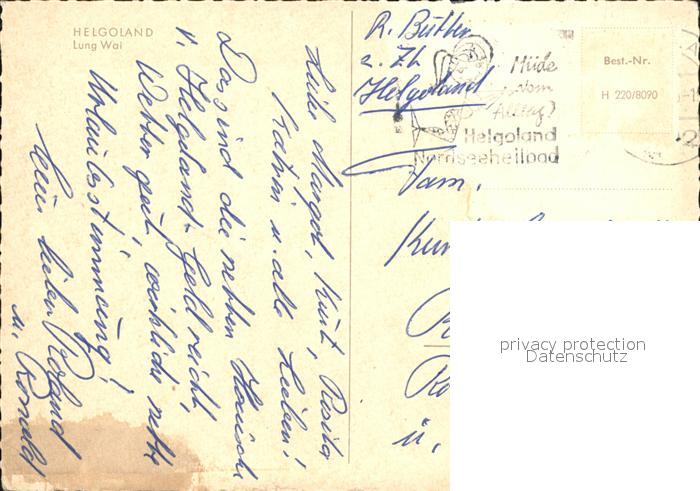 HELGOLAND
Lung Wai
Liebe Margot, Kurt, Rosita
Katrin u. alle Lieben!
Das sind die netten Häuschen
v. Helgoland. Geld reicht,
Wetter gut, wirklich nette
Urlaubsstimmung!
Roland
u. Ronald
R. Bütt
z. Zt.
Helgoland
Müde
vom
Alltag?
Helgoland
Nordseeheilbad
Best.-Nr.
H 220/8090
Fam.
ü.
privacy protection
Datenschutz